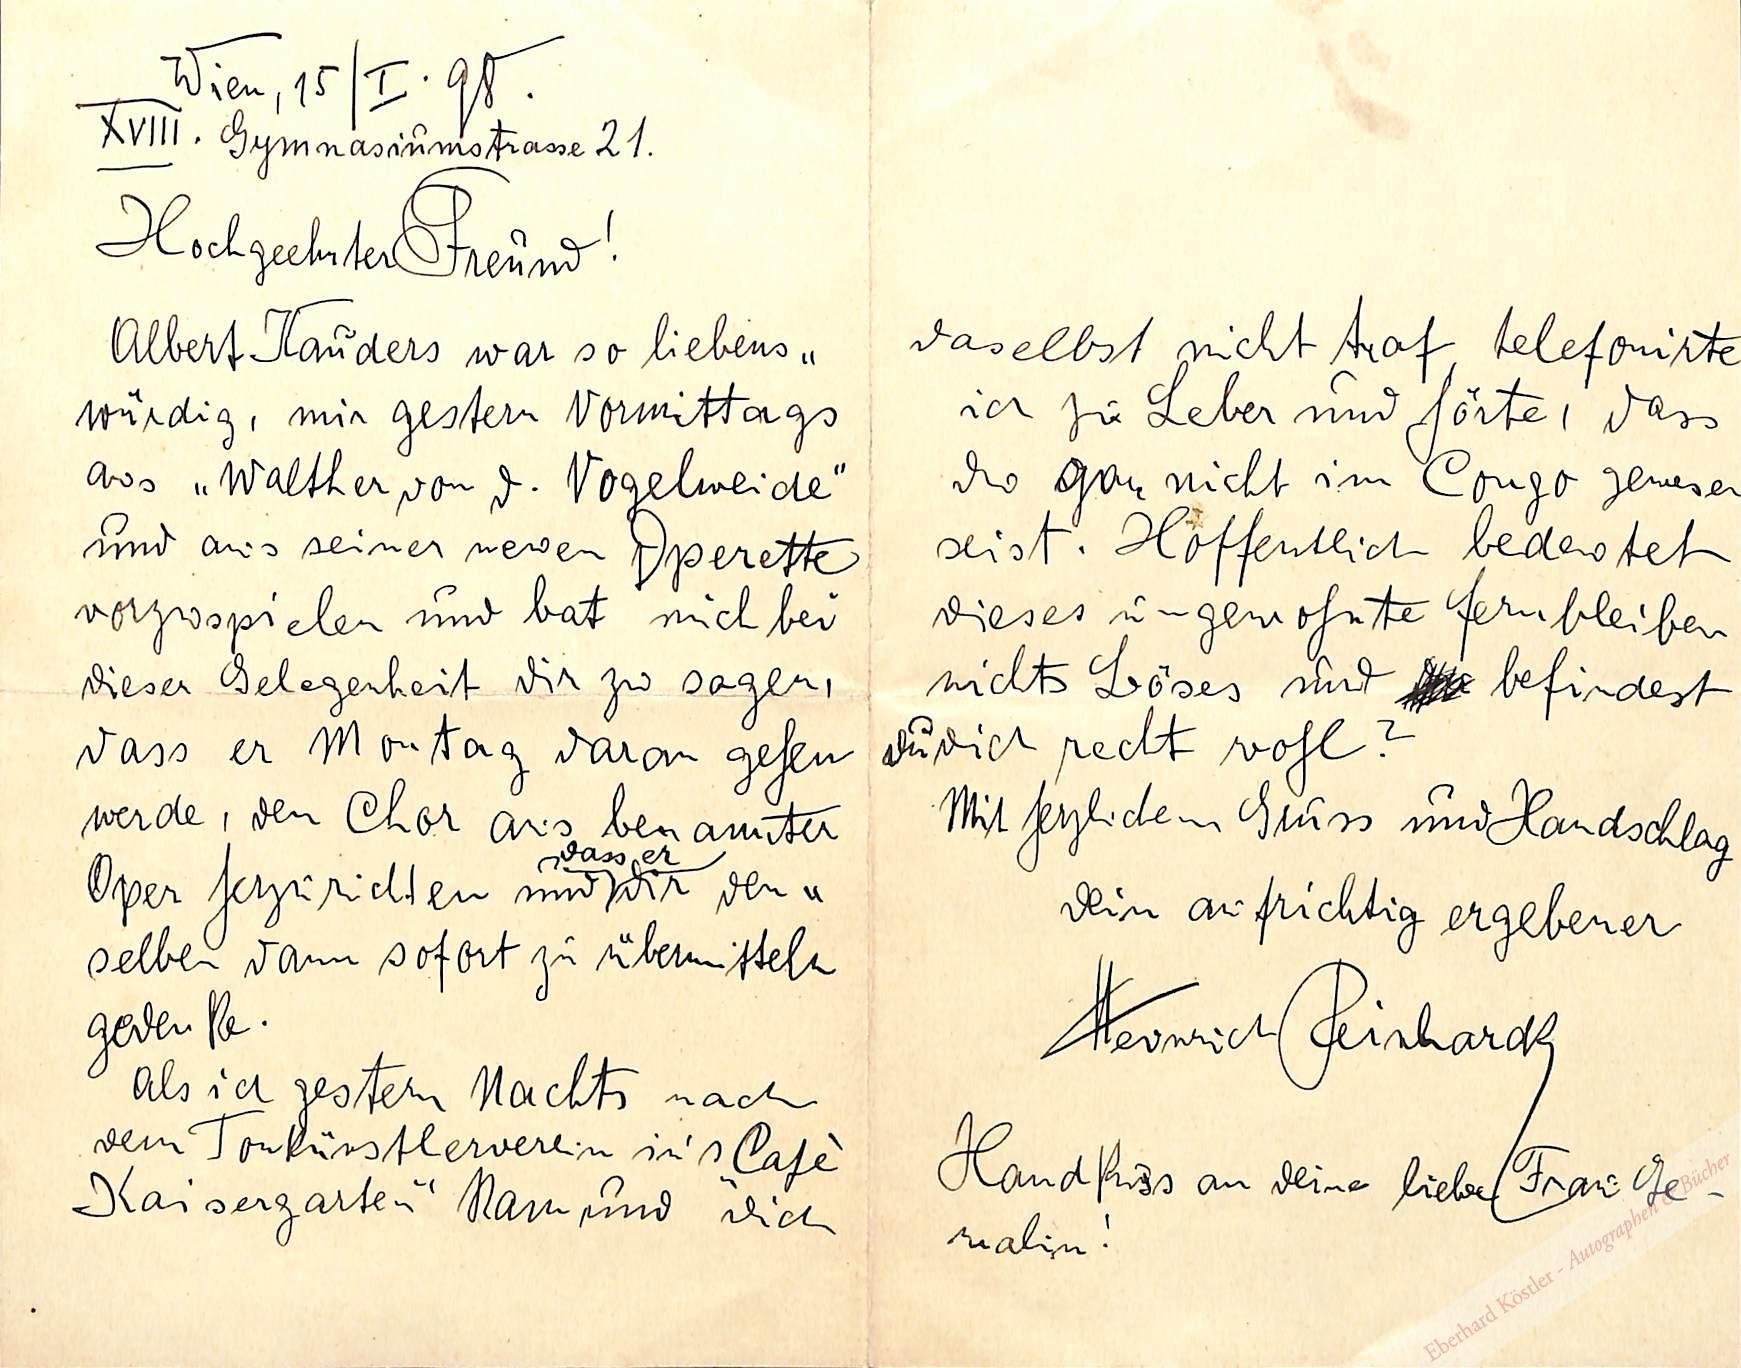 Wien, 15/I. 98.
XVIII. Gymnasiumstrasse 21.
Hochgeehrter Freund!
Albert Kauders war so liebens„
würdig, mir gestern Vormittags
aus „Walther von d. Vogelweide“
und aus seiner neuen Operette
vorzuspielen und bat mich bei
dieser Gelegenheit dir zu sagen,
dass er Montag daran gehen
werde, den Chor aus benannter
Oper herzurichten und dass er dir den„
selben dann sofort zu übermitteln
gedenke.
Als ich gestern Nachts nach
dem Tonkünstlerverein in's Café
Kaisergarten“ kam und dich
daselbst nicht traf, telefonirte
ich zu Leber und hörte, dass
du gar nicht im Congo gewesen
seist. Hoffentlich bedeutet
dieses ungewohnte Fernbleiben
nichts Böses und befindest
du dich recht wohl?
Mit herzlichem Gruss und Handschlag
dein aufrichtig ergebener
Heinrich Reinhardt
Handkuss an deine liebe Frau Ge-
malin!
Eberhard Köstler - Autographen & Bücher